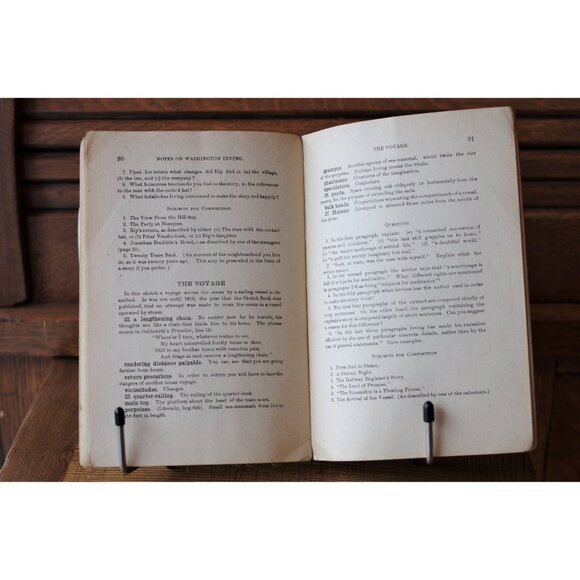 90 NOTES ON WASHINGTON IRVING.
7. Upon his return what changes did Rip find in (a) the village,
(b) the inn, and (c) the company?
8. What humorous touches do you find in the story, in the references
to the man with the cocked hat?
9. What details has Irving introduced to make the story end happily?
SUBJECTS FOR COMPOSITION.
1. The View From the Hill-top.
2. The Party at Ninepins.
3. Rip's return, as described by either (a) The man with the cocked
hat, or (b) Peter Vanderdonk, or (c) Rip's daughter.
4. Jonathan Doolittle's Hotel,—as described by one of the strangers
(page 21).
5. Twenty Years Back. (An account of the neighbourhood you live
in, as it was twenty years ago. This may be presented in the form of
a story if you prefer.)
THE VOYAGE
In this sketch a voyage across the ocean by a sailing vessel is de-
scribed. It was not until 1819, the year that the Sketch Book was
published, that an attempt was made to cross the ocean in a vessel
operated by steam.
22. a lengthening chain. No matter how far he travels, his
thoughts are like a chain that binds him to his home. The phrase
occurs in Goldsmith's Traveller, line 10:
"Where'er I turn, whatever realms to see,
My heart untravelled fondly turns to thee;
Still to my brother turns with ceaseless pain,
And drags at each remove a lengthening chain."
rendering distance palpable. You can see that you are going
farther from home.
return precarious. In order to return you will have to face the
dangers of another ocean voyage.
vicissitudes. Changes.
23. quarter-railing. The railing of the quarter-deck.
main-top. The platform about the head of the main-mast.
porpoises. (Literally, hog-fish). Small sea-mammals from five to
eight feet in length.
THE VOYAGE. 91
grampus. Another species of sea-mammal, about twice the size
of the porpoise. Perhaps Irving means the whale.
phantasms. Creatures of the imagination.
speculation. Conjecture.
yards. Spars running out obliquely or horizontally from the
masts, for the purpose of extending the sails.
bulk heads. Partitions separating the compartments of a vessel.
27. Mersey. Liverpool is situated three miles from the mouth of
the river.
QUESTIONS
1. In the first paragraph, explain (a) "a connected succession of
persons and incidents," (b) "the last still grapples us to home."
(c) "the secure anchorage of settled life." (d) "a doubtful world."
(e) "a gulf not merely imaginary but real."
2. "Such, at least, was the case with myself." Explain what the
case was.
3. In the second paragraph the author says that "a sea-voyage is
full of subjects for meditation". What different rights are mentioned
in paragraphs 3-6 as being "subjects for meditation"?
4. In the fifth paragraph what device has the author used in order
to make his story vivid?
5. The first four paragraphs of the extract are composed chiefly of
long sentences. On the other hand, the paragraph containing the
captain's story is composed largely of short sentences. Can you suggest
a reason for this difference?
6. "In the last three paragraphs Irving has made his narrative
effective by the use of particular details, rather than by the
use of general statements." Give examples.
SUBJECTS FOR COMPOSITION
1. From Sail to Steam.
2. A Stormy Night.
3. The Railway Engineer's Story.
4. "The Land of Promise."
5. "The Steamship is a Floating Prison."
6. The Arrival of the Vessel. (As described by one of the onlookers.)